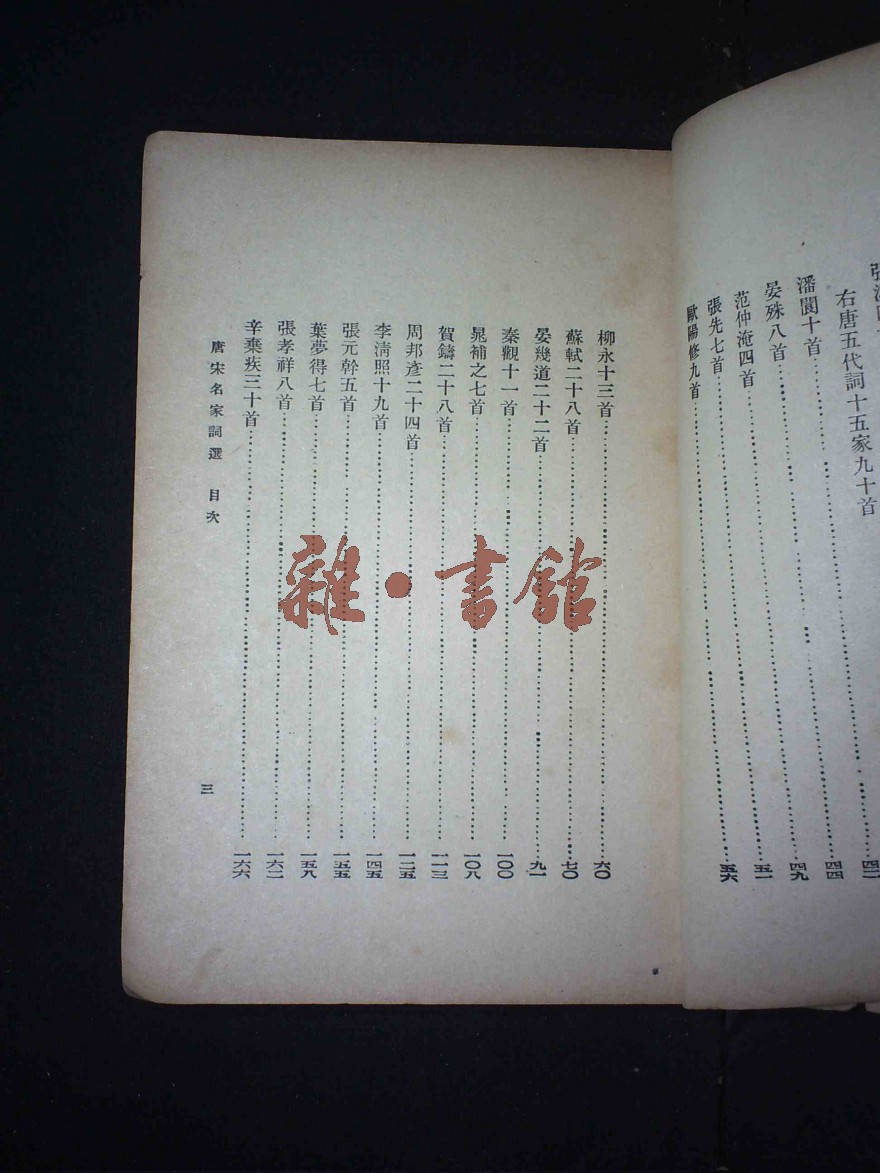 右唐五代詞十五家九十首
潘閬十首 四四
晏殊八首 四九
范仲淹四首 五一
張先七首
歐陽修九首 五六
柳永十三首 六〇
蘇軾二十八首 七〇
晏幾道二十二首 九一
秦觀十一首 一〇〇
晁補之七首 一〇八
賀鑄二十八首 一一三
周邦彥二十四首 一二五
李清照十九首 一四五
張元幹五首 一五五
葉夢得七首 一五八
張孝祥八首 一六二
辛棄疾三十首 一六六
唐宋名家詞選 目次
三
雜·書館